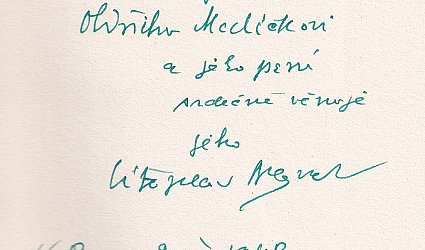 Oldřichu Medíčkovi
a jeho paní
srdečně věnuje
jeho
Vítězslav Nezval